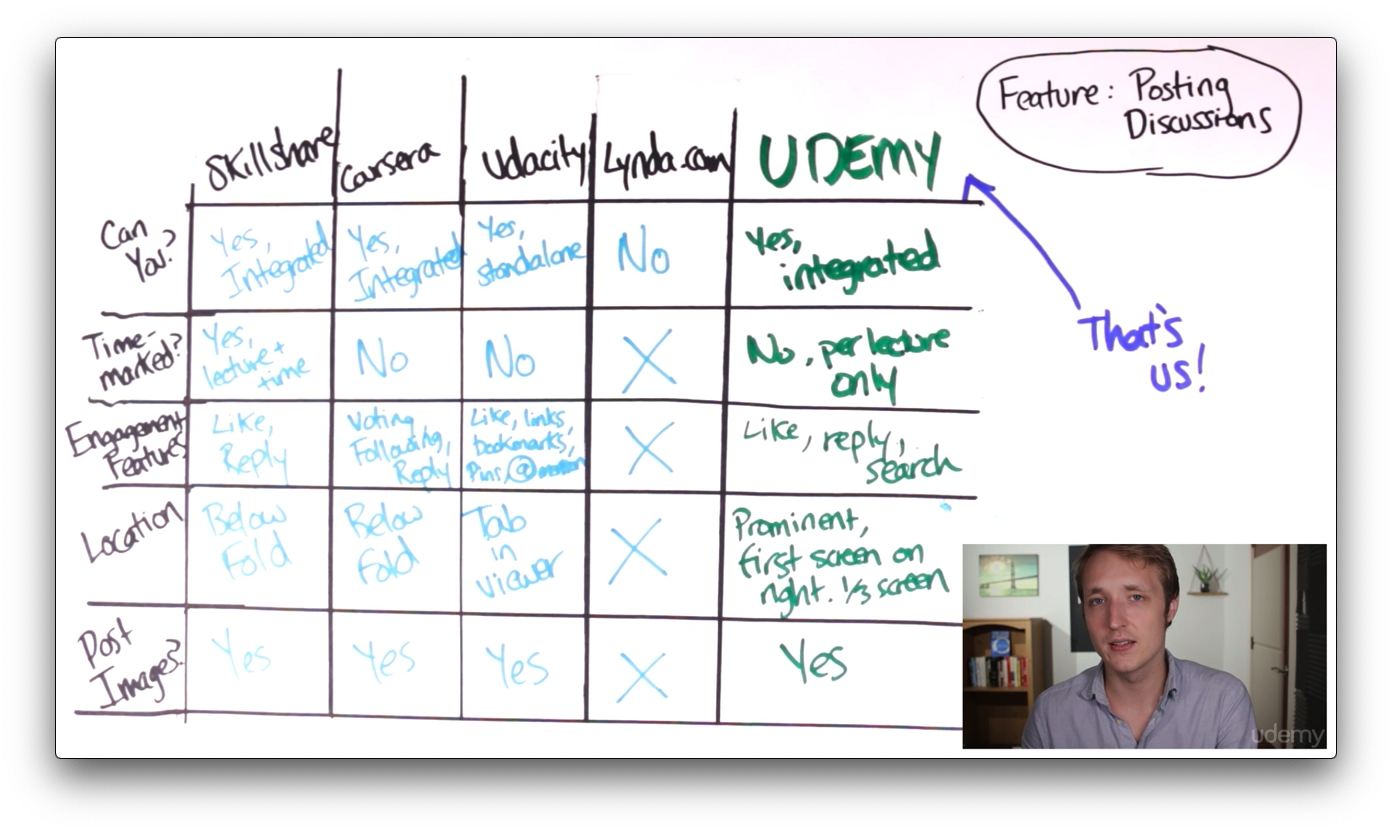 Feature: Posting
Discussions
Skillshare
Coursera
Udacity
Lynda.com
UDEMY
Can
You?
Yes,
Integrated
Yes,
Integrated
Yes,
standalone
No
Yes,
integrated
That's
us!
Time-
marked?
Yes,
lecture +
time
No
No
X
No, per lecture
only
Engagement
Features
Like,
Reply
Voting
Following,
Reply
Like, links,
bookmarks,
Pins, @mention
X
Like, reply,
search
Location
Below
Fold
Below
Fold
Tab
in
viewer
X
Prominent,
first screen on
right. 1/3 screen
Post
Images?
Yes
Yes
Yes
X
Yes
udemy